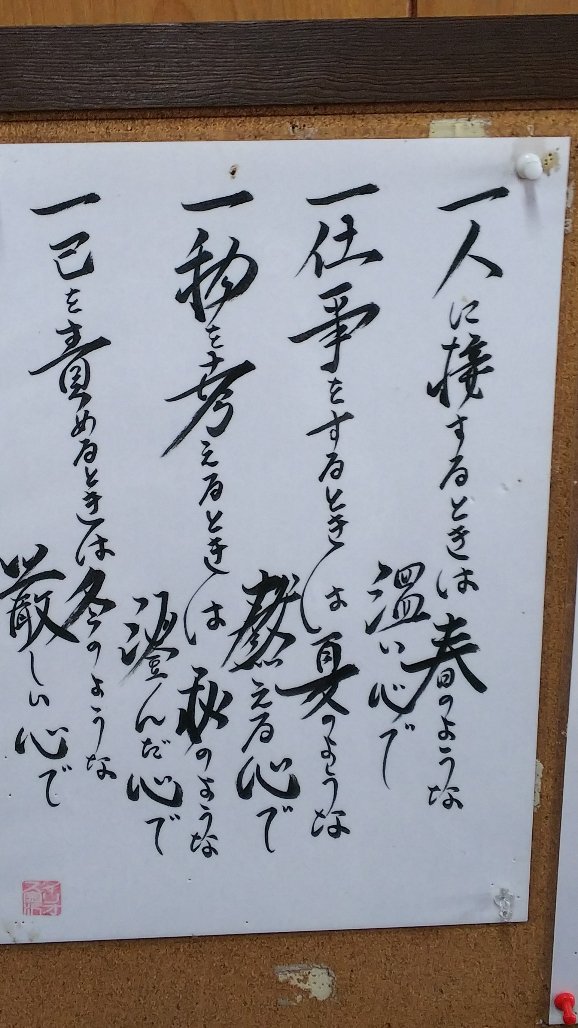 一人に接するときは春のような
温い心で
一仕事をするときは夏のような
熱える心で
一物を考えるときは秋のような
澄んだ心で
一己を責めるときは冬のような
厳しい心で